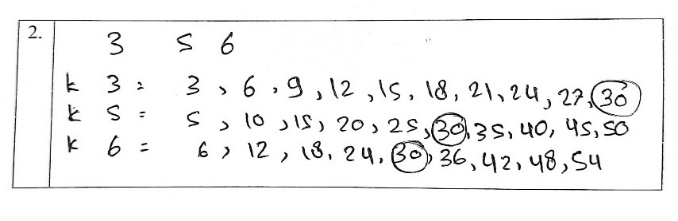 2.
3 5 6
k 3 = 3, 6, 9, 12, 15, 18, 21, 24, 27, 30
k 5 = 5, 10, 15, 20, 25, 30, 35, 40, 45, 50
k 6 = 6, 12, 18, 24, 30, 36, 42, 48, 54